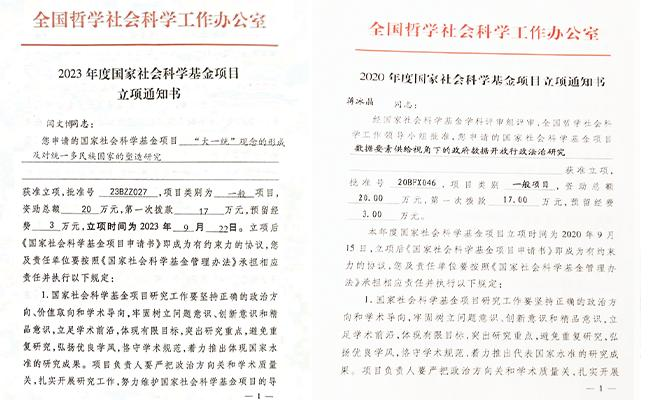 全国哲学社会科学工作办公室
2023 年度国家社会科学基金项目
立项通知书
闫文博同志：
您申请的国家社会科学基金项目 “大一统”观念的形成
及对统一多民族国家的塑造研究
获准立项，批准号 23BZZ027 ，项目类别为 一般 项目，
资助总额 20 万元，第一次拨款 17 万元，预留经
费 3 万元，立项时间为 2023 年 9 月 22日。立项后
《国家社会科学基金项目申请书》即成为有约束力的协议，您
及责任单位要按照《国家社会科学基金管理办法》承担相应
责任并执行以下规定：
1.国家社会科学基金项目研究工作要坚持正确的政治方
向、价值取向和学术导向，牢固树立问题意识、创新意识和精
品意识，立足学术前沿，体现有限目标，突出研究重点，避免重
复研究，弘扬优良学风，恪守学术规范，着力推出体现国家水
准的研究成果。项目负责人要严把政治方向关和学术质量
关，扎实开展研究工作，努力维护国家社会科学基金项目的导
— 1 —
全国哲学社会科学工作办公室
2020 年度国家社会科学基金项目立项通知书
蒋冰晶 同志：
经国家社会科学基金学科评审组评审，全国哲学社会科
学工作领导小组批准，您申请的国家社会科学基金项目
数据要素供给视角下的政府数据开放行政法治研究
获准立项，
批准号 20BFX046 ，项目类别 一般项目 ，资助总额
20.00 万元，第一次拨款 17.00 万元，预留经费
3.00 万元。
本年度国家社会科学基金项目立项时间为 2020 年 9 月
15日，立项后《国家社会科学基金项目申请书》即成为有约束
力的协议，您及责任单位要按照《国家社会科学基金管理办
法》承担相应责任并执行以下规定：
1.国家社会科学基金项目研究工作要坚持正确的政治方
向和学术导向，牢固树立问题意识、创新意识和精品意识，立
足学术前沿，体现有限目标，突出研究重点，避免重复研究，弘
扬优良学风，恪守学术规范，着力推出代表国家水准的研究成
果。项目负责人要严把政治方向关和学术质量关，扎实开展
— 1 —